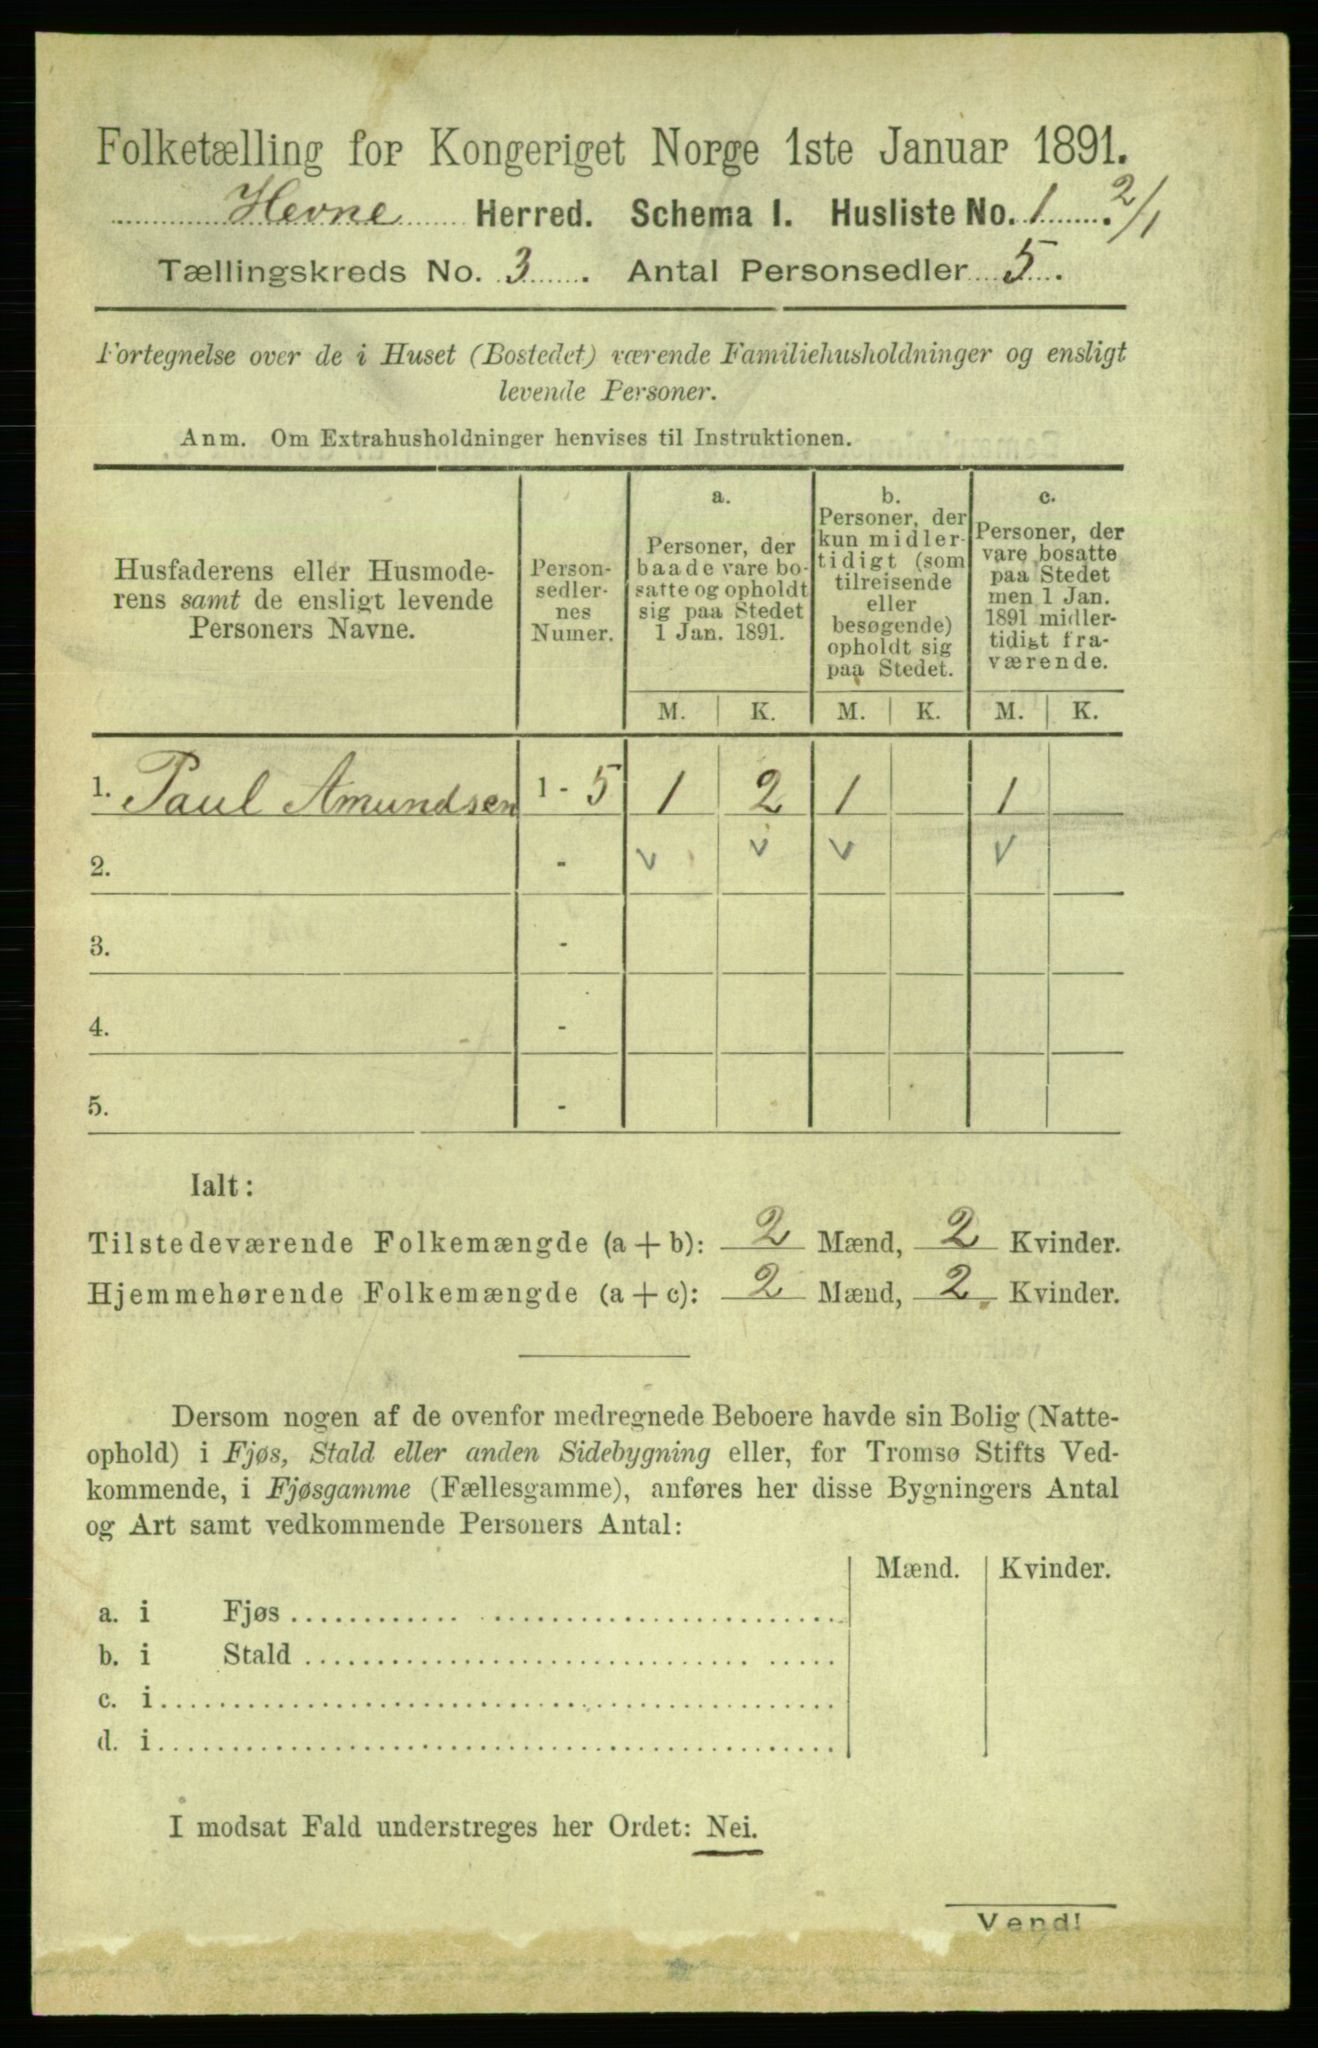 Folketælling for Kongeriget Norge 1ste Januar 1891.
Hevne Herred. Schema I. Husliste No. 1. 2/1
Tællingskreds No. 3. Antal Personsedler 5.
Fortegnelse over de i Huset (Bostedet) værende Familiehusholdninger og ensligt
levende Personer.
Anm. Om Extrahusholdninger henvises til Instruktionen.
Husfaderens eller Husmode-
rens samt de ensligt levende
Personers Navne.
Person-
sedler-
nes
Numer.
a.
Personer, der
baade vare bo-
satte og opholdt
sig paa Stedet
1 Jan. 1891.
b.
Personer, der
kun midler-
tidigt (som
tilreisende
eller
besøgende)
opholdt sig
paa Stedet.
c.
Personer, der
vare bosatte
paa Stedet
men 1 Jan.
1891 midler-
tidigt fra-
værende.
M. K. M. K. M. K.
1. Paul Amundsen 1 - 5 1 2 1 1
2. - v v v v
3. -
4. -
5. -
Ialt:
Tilstedeværende Folkemængde (a + b): 2 Mænd, 2 Kvinder.
Hjemmehørende Folkemængde (a + c): 2 Mænd, 2 Kvinder.
Dersom nogen af de ovenfor medregnede Beboere havde sin Bolig (Natte-
ophold) i Fjøs, Stald eller anden Sidebygning eller, for Tromsø Stifts Ved-
kommende, i Fjøsgamme (Fællesgamme), anføres her disse Bygningers Antal
og Art samt vedkommende Personers Antal:
Mænd. Kvinder.
a. i Fjøs
b. i Stald
c. i
d. i
I modsat Fald understreges her Ordet: Nei.
Vend!